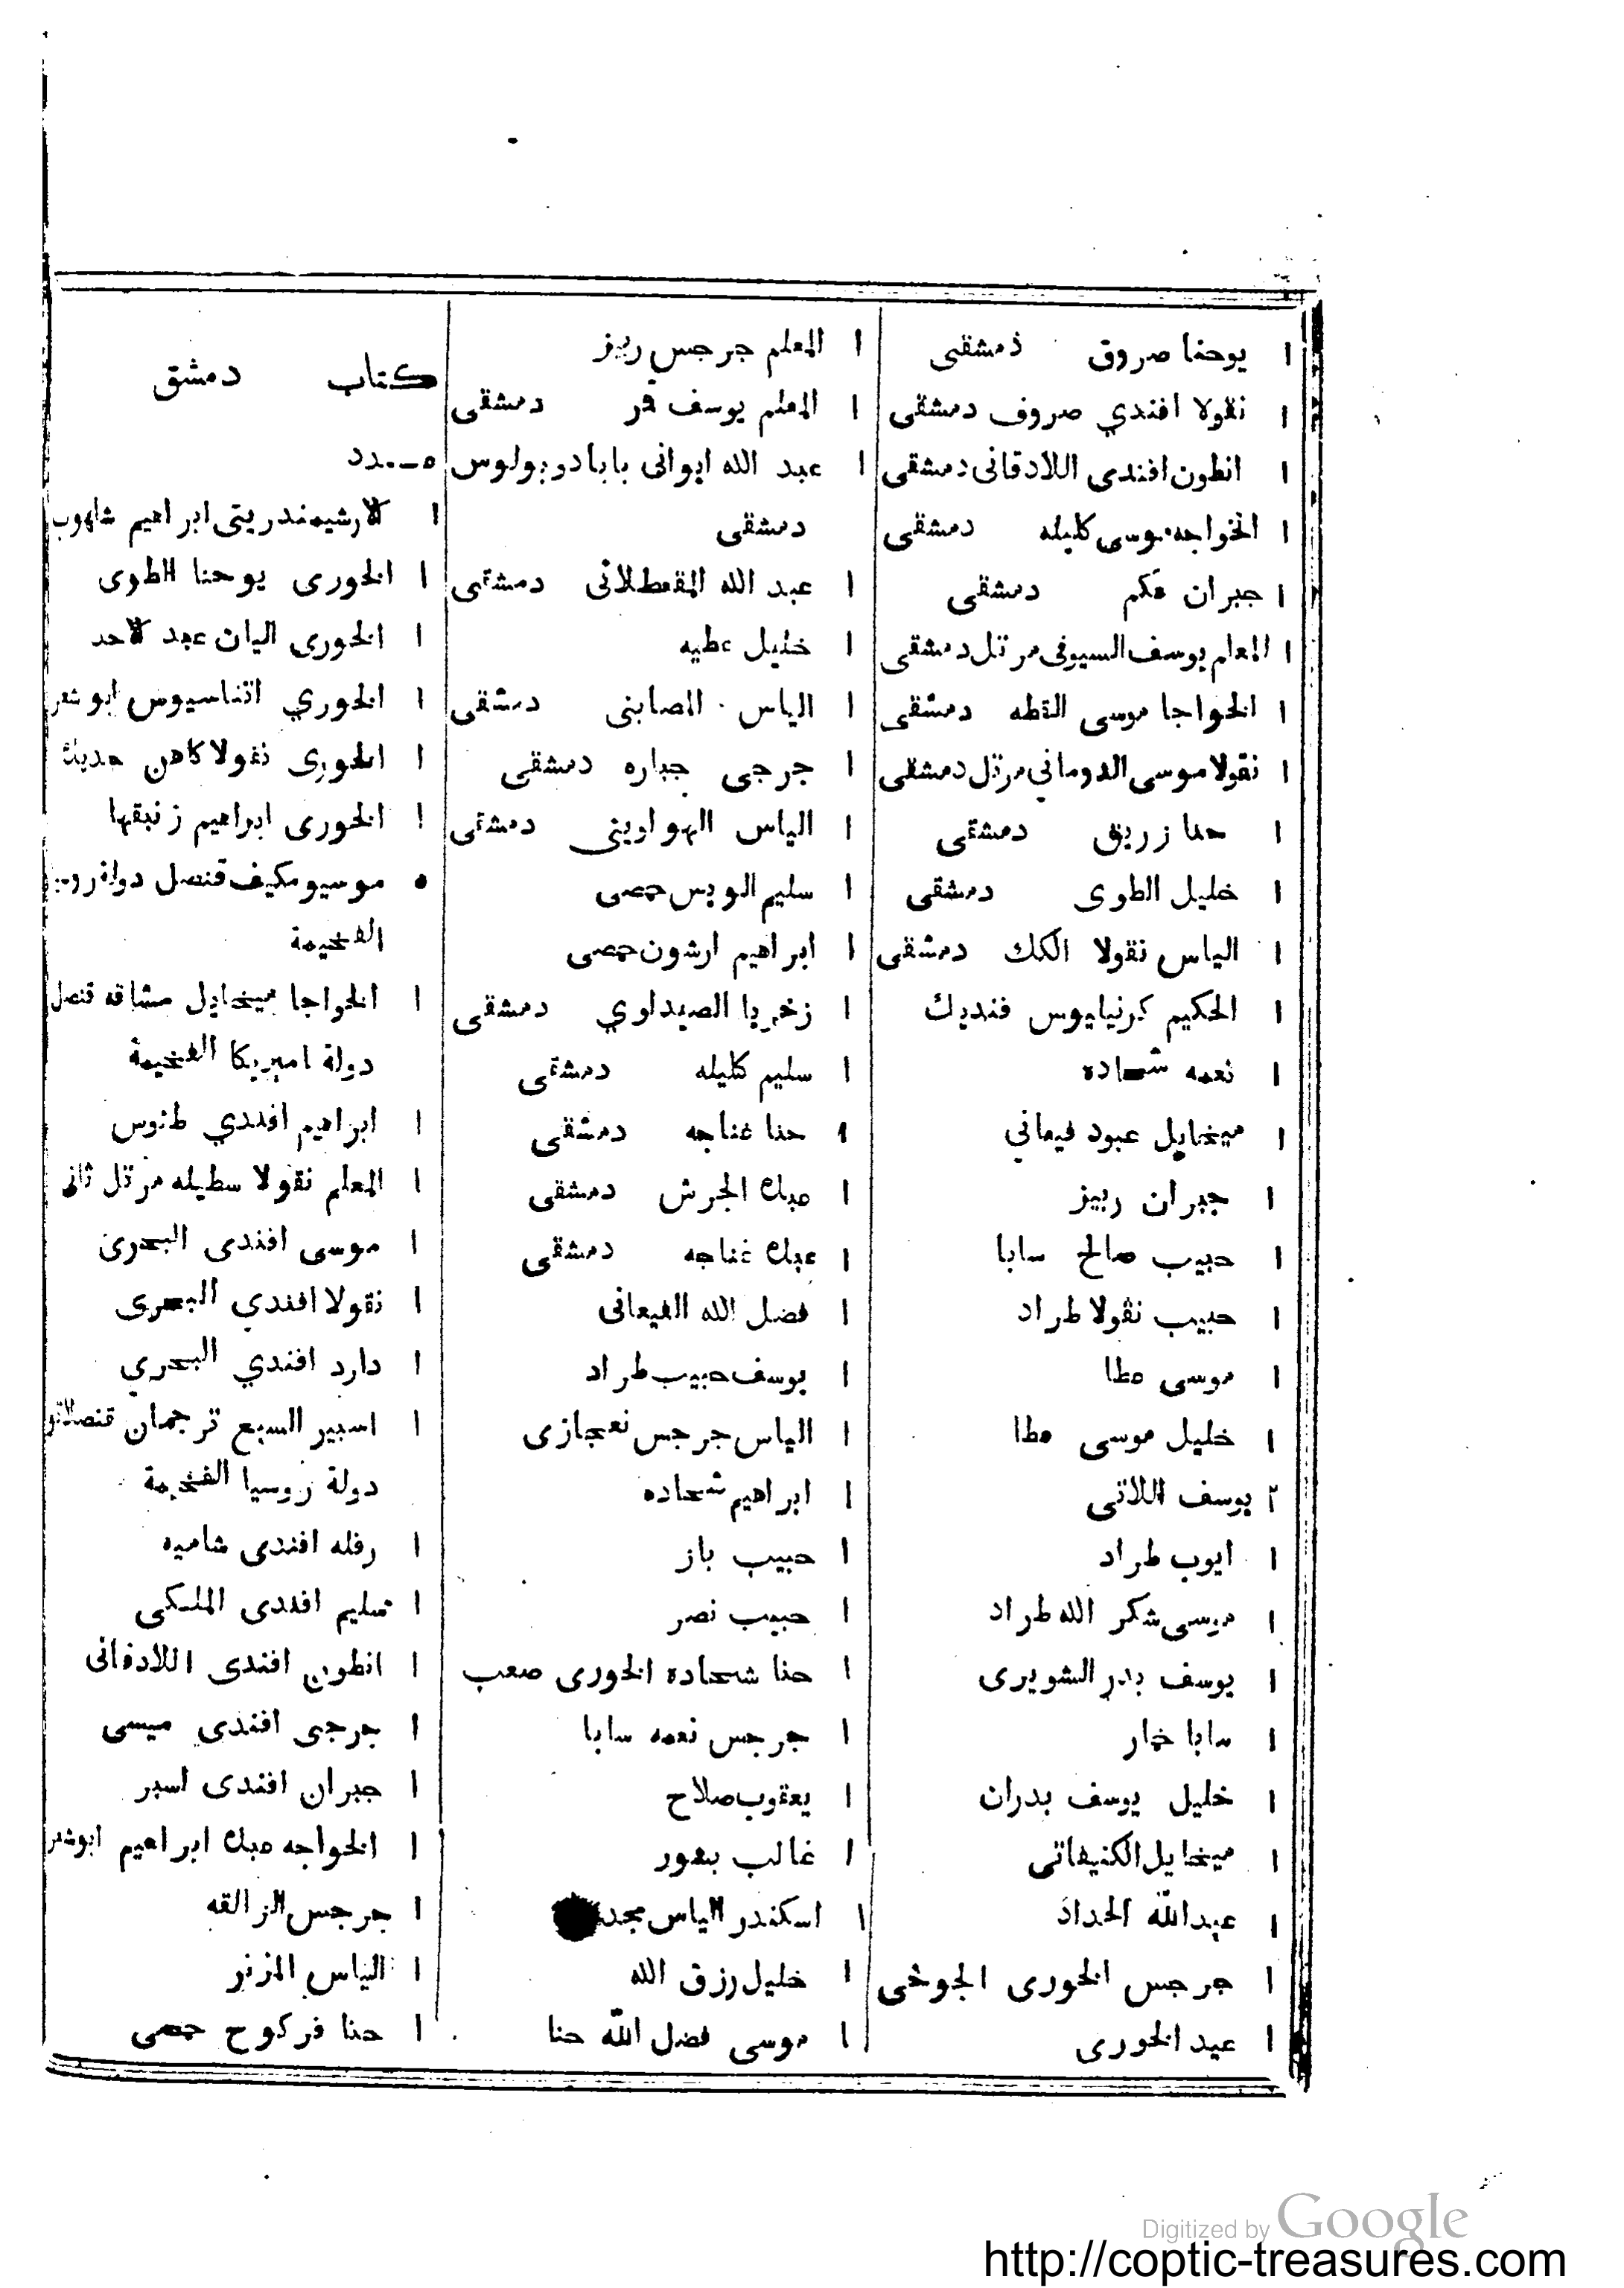 ١ يوحنا صروق دمشقى
١ نقولا افندي صروف دمشقى
١ انطون افندى اللادقانى دمشقى
١ الخواجه موسى كليله دمشقى
١ جبران دمشقى
١ المعلم يوسف السيوفى مرتل دمشقى
١ الخواجا موسى القطه دمشقى
١ نقولا موسى الدوماني مرتل دمشقى
١ حنا زريق دمشقى
١ خليل الطوى دمشقى
١ الياس نقولا الكك دمشقى
١ الحكيم كرنيليوس فنديك
١ نعمه شحاده
١ ميخايل عبود فيعاني
١ جبران ربيز
١ حبيب صالح سابا
١ حبيب نقولا طراد
١ موسى عطا
١ خليل موسى عطا
٢ يوسف اللاتى
١ ايوب طراد
١ شكر الله طراد
١ يوسف بدر الشويرى
١ سابا خمار
١ خليل يوسف بدران
١ ميخايل الكنيفاتى
١ عبدالله الحداد
١ جرجس الخورى الجوخى
١ عيد الخورى
١ المعلم جرجس ربيز
١ المعلم يوسف دمشقى
١ عبد الله ايوانى بابادوبولوس
دمشقى
١ عبد الله القعطلانى دمشقى
١ خليل عطيه
١ الياس الصابنى دمشقى
١ جرجى جباره دمشقى
١ الياس الهواوينى دمشقى
١ سليم الويس حمصى
١ ابراهيم ارشون حمصى
١ زخريا الصيداوي دمشقى
١ سليم كليله دمشقى
١ حنا غناجه دمشقى
١ عبده الجرش دمشقى
١ عبده غناجه دمشقى
١ فضل الله الفيعانى
١ يوسف حبيب طراد
١ الياس جرجس نعجازى
١ ابراهيم شحاده
١ حبيب باز
١ حبيب نصر
١ حنا شحاده الخورى صعب
١ جرجس نعمه سابا
١ يعقوب صلاح
١ غالب بعور
١ اسكندر الياس
١ خليل رزق الله
١ موسى فضل الله حنا
كتاب دمشق
عدد
١ الارشيمندريتى ابراهيم شاهوب
١ الخورى يوحنا الطوى
١ الخورى اليان عبد الاحد
١ الخوري اثناسيوس ابو شعر
١ الخورى نقولا كاهن
١ الخورى ابراهيم زنبقها
٥ موسيو مكيف قنصل دولة
الفخيمة
١ الخواجا ميخايل مشاقه قنصل
دولة اميريكا الفخيمة
١ ابراهيم افندي طنوس
١ المعلم نقولا سطيله مرتل ثانى
١ موسى افندى البحرى
١ نقولا افندي البحرى
١ دارد افندي البحري
١ اسبير السبع ترجمان
دولة روسيا الفخيمة
١ رفله افندى شاميه
١ سليم افندى الملكى
١ انطون افندى اللادقانى
١ جرجى افندى عيسى
١ جبران افندى اسبر
١ الخواجه عبده ابراهيم ابوشعر
١ جرجس الزالقه
١ الياس المزنر
١ حنا فركوح حمصى
Digitized by Google
http://coptic-treasures.com